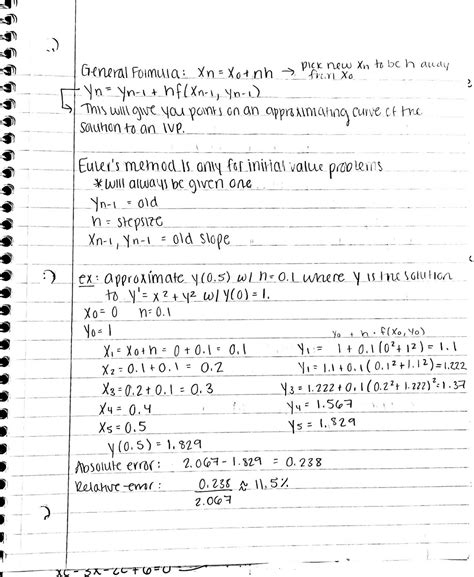 General Formula: Xn = X0 + nh → pick new Xn to be h away
from X0
Yn = Yn-1 + hf(Xn-1, Yn-1)
This will give you points on an approximating curve of the
solution to an IVP.
Euler's method is only for initial value problems
*will always be given one
Yn-1 = old
h = stepsize
Xn-1, Yn-1 = old slope
ex: approximate y(0.5) w/ h=0.1 where y is the solution
to y' = x² + y² w/ y(0) = 1.
X0 = 0 h = 0.1
Y0 = 1
Y0 + h · f(X0, Y0)
X1 = X0 + h = 0 + 0.1 = 0.1 Y1 = 1 + 0.1(0² + 1²) = 1.1
X2 = 0.1 + 0.1 = 0.2 Y1 = 1.1 + 0.1(0.1² + 1.1²) = 1.222
X3 = 0.2 + 0.1 = 0.3 Y3 = 1.222 + 0.1(0.2² + 1.222)² = 1.37
X4 = 0.4 Y4 = 1.567
X5 = 0.5 Y5 = 1.829
y(0.5) = 1.829
Absolute error: 2.067 - 1.829 = 0.238
Relative error: 0.238 ≈ 11.5%
2.067